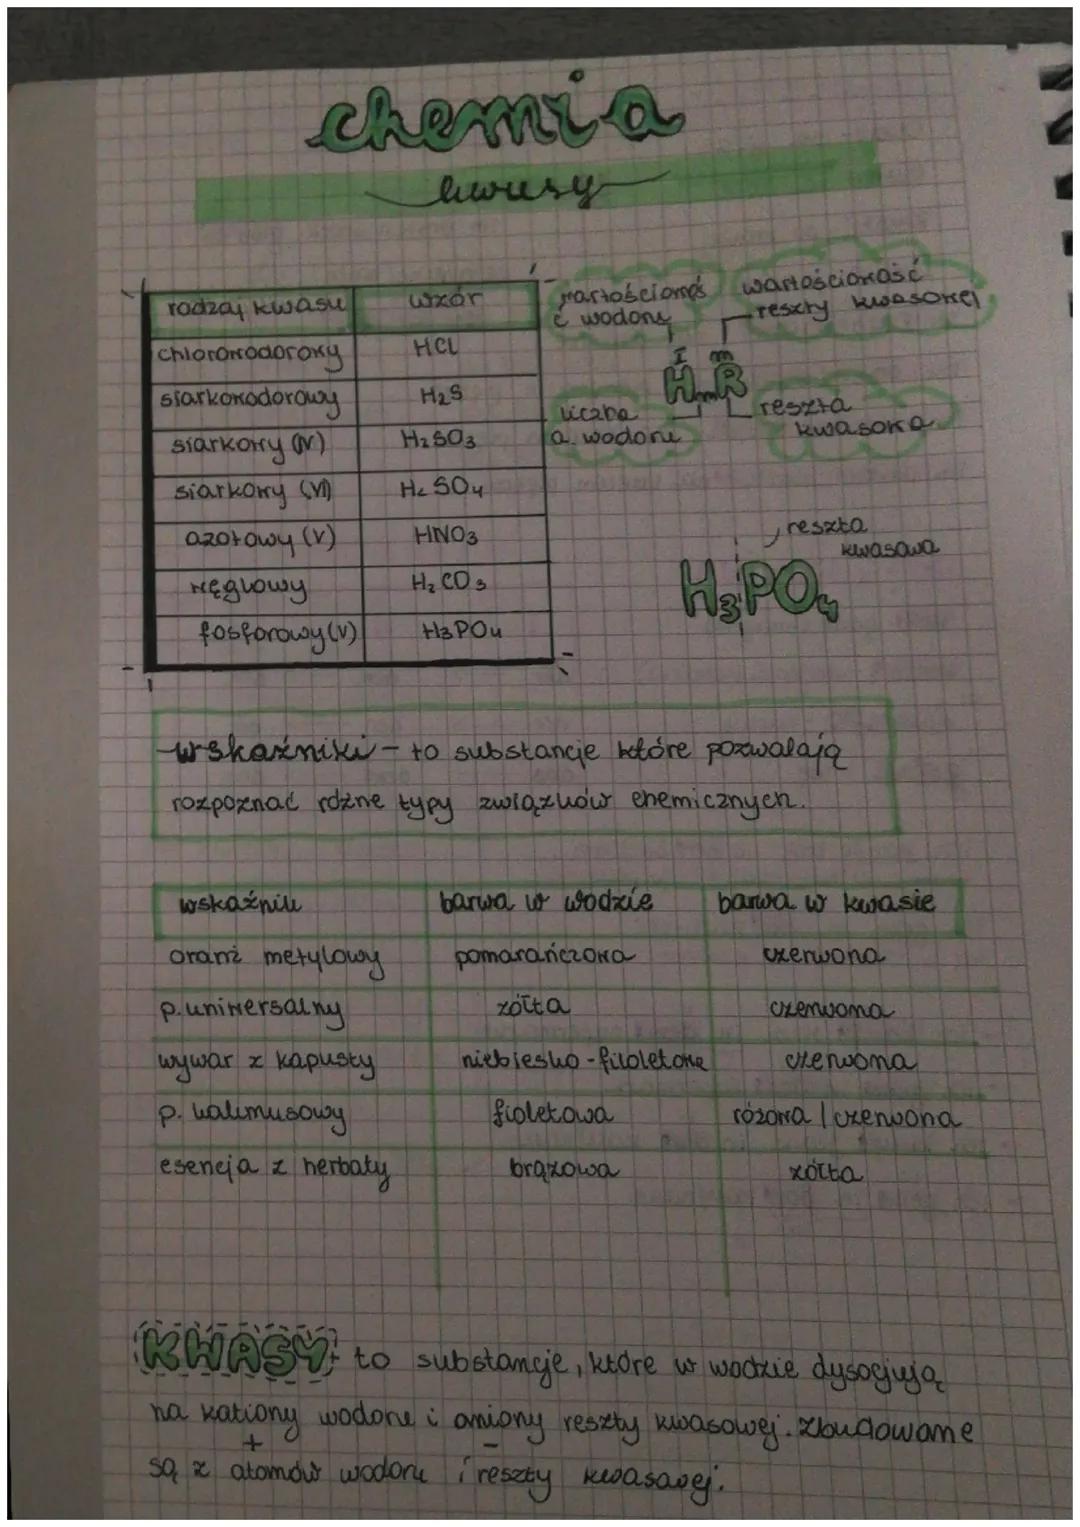 chemia
kwasy
rodzaj kwasu wzór
chlorowodorowy HCl
siarkowodorowy H₂S
siarkowy (IV) H₂SO₃
siarkowy (VI) H₂SO₄
azotowy (V) HNO₃
węglowy H₂CO₃
fosforowy (V) H₃PO₄
wartościowoś
ć wodoru
wartościowość
reszty kwasowej
I m
HₘR
liczba
a. wodoru
reszta
kwasowa
reszta
kwasowa
H₃PO₄
wskaźniki - to substancje które pozwalają
rozpoznać różne typy związków chemicznych.
wskaźnik barwa w wodzie barwa w kwasie
oranż metylowy pomarańczowa czerwona
p. uniwersalny żółta czerwona
wywar z kapusty niebiesko-fioletowe czerwona
p. lakmusowy fioletowa różowa / czerwona
esencja z herbaty brązowa żółta
KWASY to substancje, które w wodzie dysocjują
na kationy wodoru i aniony reszty kwasowej. Zbudowane
+ -
są z atomów wodoru i reszty kwasowej.